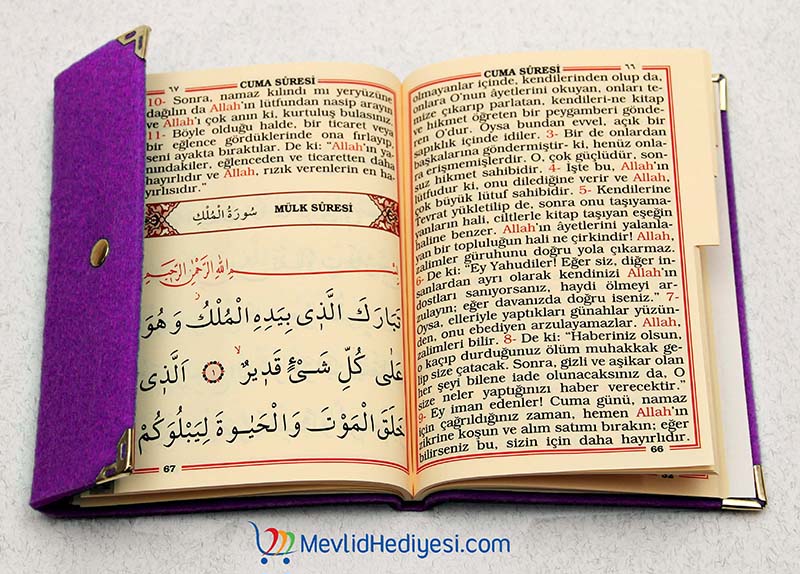 CUMA SÛRESİ ٦٦
olmayanlar içinde, kendilerinden olup da,
onlara O'nun âyetlerini okuyan, onları te-
mize çıkarıp parlatan, kendileri-ne kitap
ve hikmet öğreten bir peygamberi gönde-
ren O'dur. Oysa bundan evvel, açık bir
sapıklık içinde idiler. 3- Bir de onlardan
başkalarına göndermiştir- ki, henüz onla-
ra erişmemişlerdir. O, çok güçlüdür, son-
suz hikmet sahibidir. 4- İşte bu, Allah'ın
lütfudur ki, onu dilediğine verir ve Allah,
çok büyük lütuf sahibidir. 5- Kendilerine
Tevrat yükletilip de, sonra onu taşıyama-
yanların hali, ciltlerle kitap taşıyan eşeğin
haline benzer. Allah'ın âyetlerini yalanla-
yan bir topluluğun hali ne çirkindir! Allah,
zalimler güruhunu doğru yola çıkarmaz.
6- De ki: "Ey Yahudiler! Eğer siz, diğer in-
sanlardan ayrı olarak kendinizi Allah'ın
dostları sanıyorsanız, haydi ölmeyi ar-
zulayın; eğer davanızda doğru iseniz." 7-
Oysa, elleriyle yaptıkları günahlar yüzün-
den, onu ebediyen arzulayamazlar. Allah,
zalimleri bilir. 8- De ki: "Haberiniz olsun,
o kaçıp durduğunuz ölüm muhakkak ge-
lip size çatacak. Sonra, gizli ve aşikar olan
her şeyi bilene iade olunacaksınız da, O
size neler yaptığınızı haber verecektir."
9- Ey iman edenler! Cuma günü, namaz
için çağrıldığınız zaman, hemen Allah'ın
zikrine koşun ve alım satımı bırakın; eğer
bilirseniz bu, sizin için daha hayırlıdır.
66
٦٧ CUMA SÛRESİ
10- Sonra, namaz kılındı mı yeryüzüne
dağılın da Allah'ın lütfundan nasip arayın
ve Allah'ı çok anın ki, kurtuluş bulasınız.
11- Böyle olduğu halde, bir ticaret veya
bir eğlence gördüklerinde ona fırlayıp,
seni ayakta bıraktılar. De ki: "Allah'ın ya-
nındakiler, eğlenceden ve ticaretten daha
hayırlıdır ve Allah, rızık verenlerin en ha-
yırlısıdır."
سُورَةُ الْمُلْكِ MÜLK SÛRESİ
بِسْمِ اللهِ الرَّحْمٰنِ الرَّحِيمِ
تَبَارَكَ الَّذ۪ي بِيَدِهِ الْمُلْكُ وَهُوَ
عَلٰى كُلِّ شَيْءٍ قَد۪يرٌۙ ﴿١﴾ اَلَّذ۪ي
خَلَقَ الْمَوْتَ وَالْحَيٰوةَ لِيَبْلُوَكُمْ
67
MevlidHediyesi.com